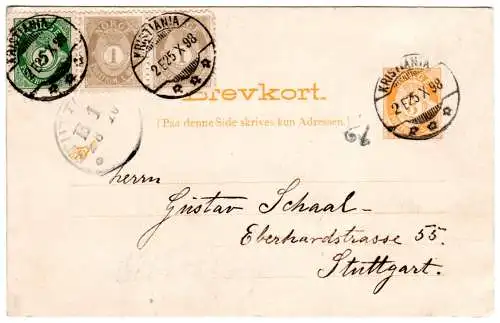 KRISTIANIA
2 E 25 X 98
NORGE
5
1
KRISTIANIA
2 E 25 X 98
Brevkort.
(Paa denne Side skrives kun Adressen.)
Herrn
Gustav Schaal-
Eberhardstrasse 55.
Stuttgart.